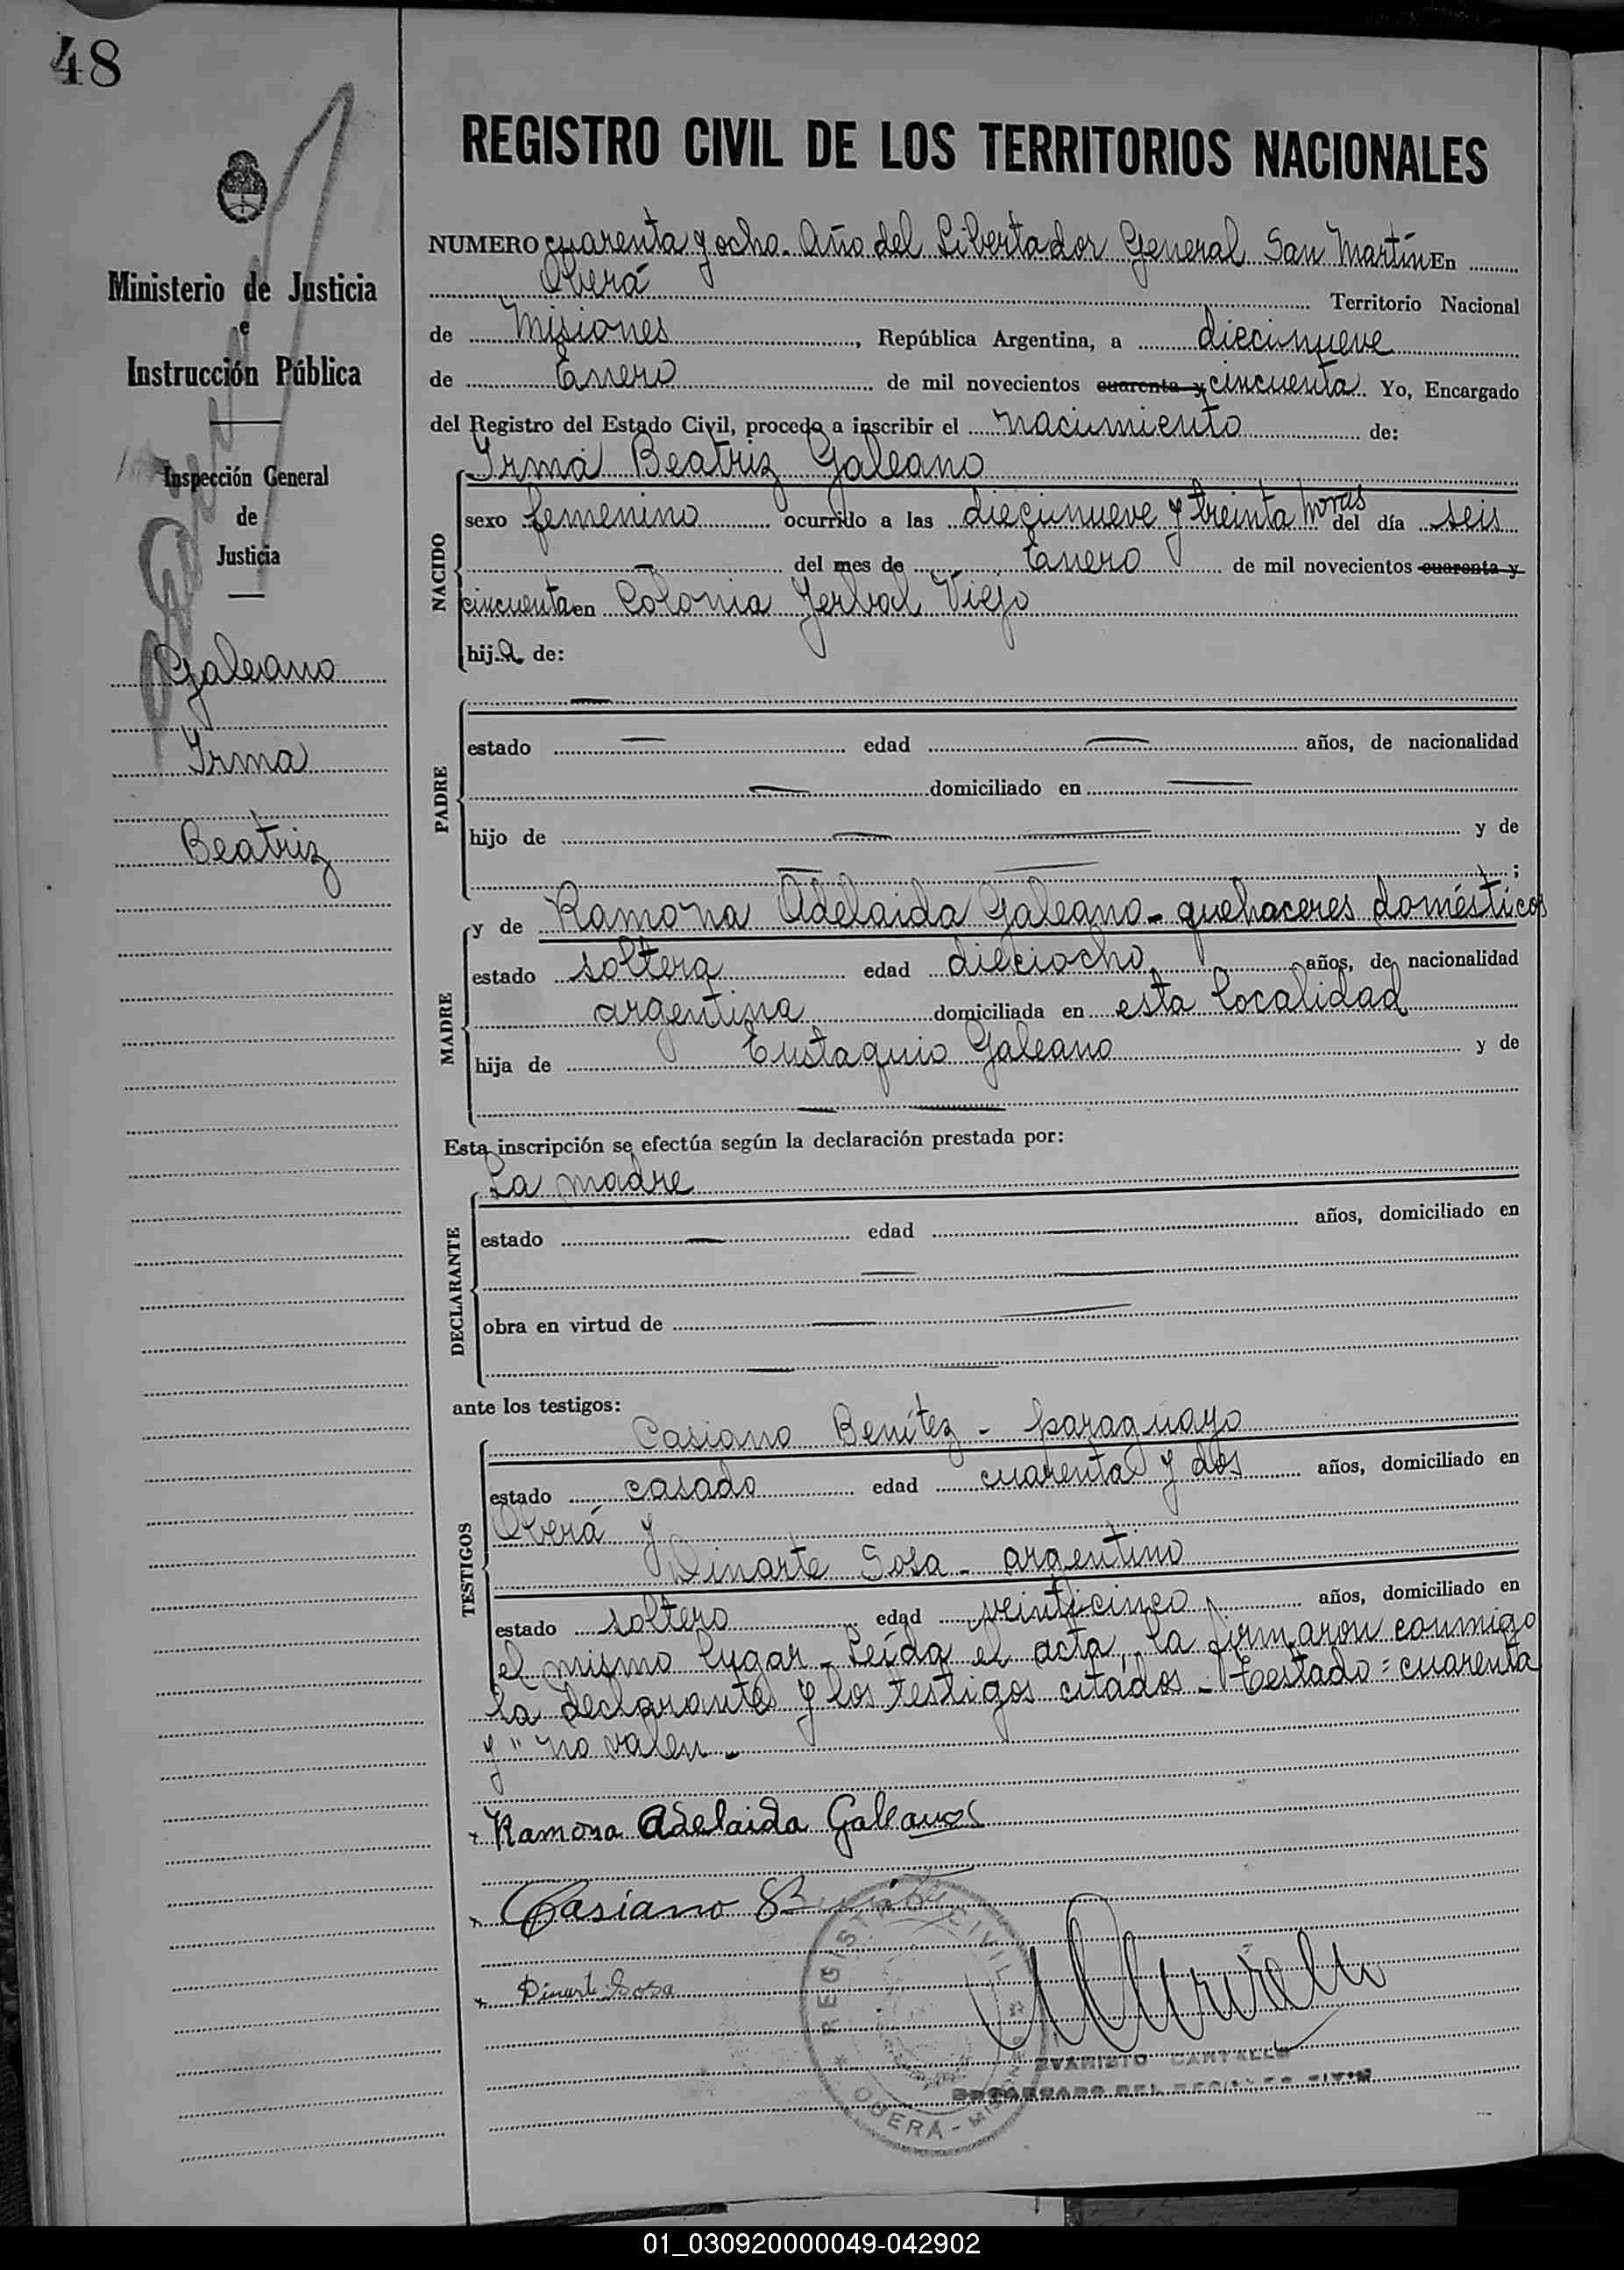 48
REGISTRO CIVIL DE LOS TERRITORIOS NACIONALES
Ministerio de Justicia
e
Instrucción Pública
Inspección General
de
Justicia
Galeano
Irma
Beatriz
NUMERO cuarenta y ocho. Año del Libertador General San Martín En
Oberá Territorio Nacional
de Misiones, República Argentina, a diecinueve
de Enero de mil novecientos cuarenta y cincuenta. Yo, Encargado
del Registro del Estado Civil, procedo a inscribir el nacimiento de:
NACIDO
Irma Beatriz Galeano
sexo femenino ocurrido a las diecinueve y treinta horas del día seis
— del mes de Enero de mil novecientos cuarenta y
cincuenta en Colonia Yerbal Viejo
hija de:
PADRE
—
estado — edad — años, de nacionalidad
— domiciliado en —
hijo de — y de
— ;
MADRE
y de Ramona Adelaida Galeano - quehaceres domésticos
estado soltera edad dieciocho años, de nacionalidad
argentina domiciliada en esta localidad
hija de Eustaquio Galeano y de
—
Esta inscripción se efectúa según la declaración prestada por:
DECLARANTE
La madre
estado — edad — años, domiciliado en
—
obra en virtud de —
—
ante los testigos:
TESTIGOS
Casiano Benítez - paraguayo
estado casado edad cuarenta y dos años, domiciliado en
Oberá y
Dinarte Sosa - argentino
estado soltero edad veinticinco años, domiciliado en
el mismo lugar - Leída el acta, la firmaron conmigo
la declarante y los testigos citados - Testado: cuarenta
y" no valen -
Ramona Adelaida Galeano
Casiano Benítez
Dinarte Sosa
REGISTRO CIVIL
OBERÁ - MISIONES
EVARISTO
ENCARGADO DEL REGISTRO CIVIL
01_030920000049-042902